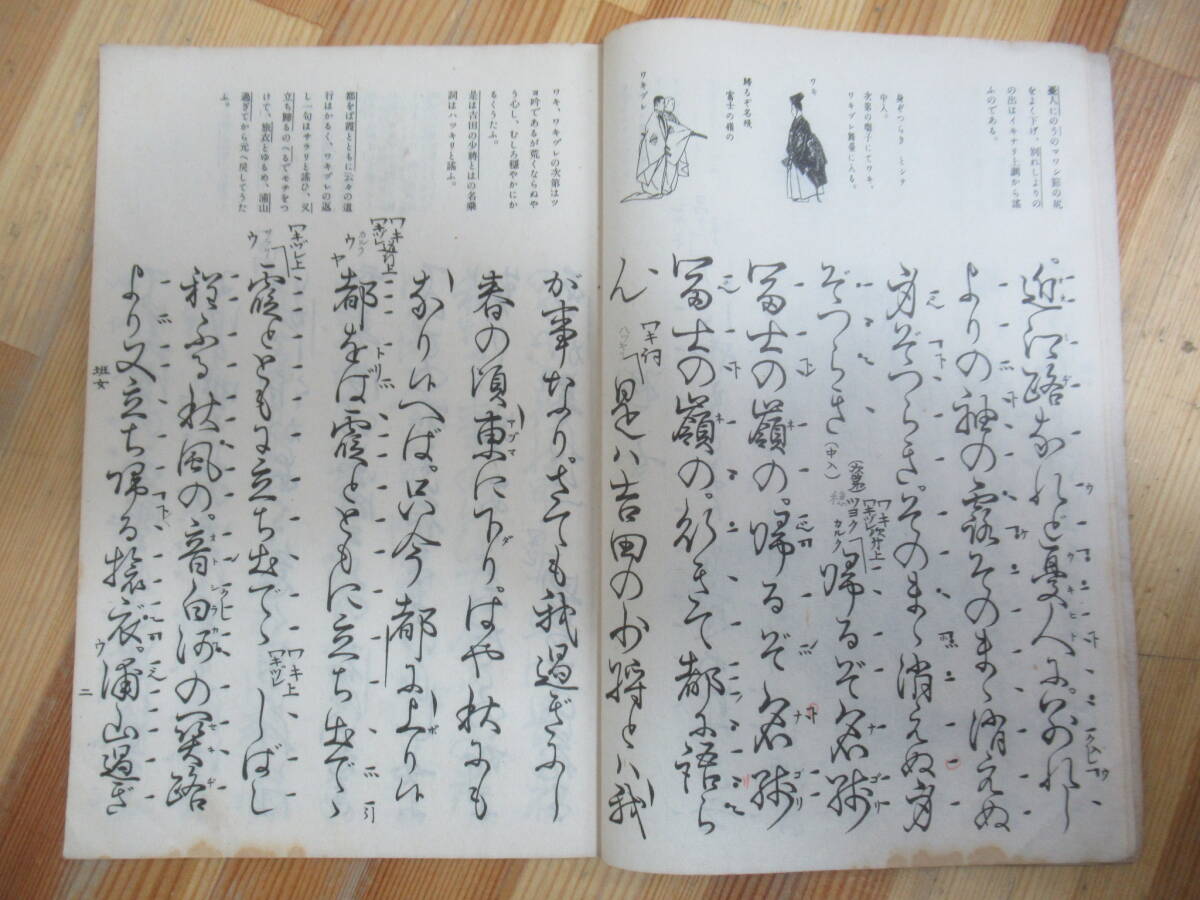 憂人にのうのマワシ節の扱
をよく下げ、別れしよりの
の出はイキナリと調から謡
ふのである。
身ぞつらき とシテ
中入。
次第の囃子にてワキ、
ワキヅレ舞臺に入る。
ワキ
歸るぞ名殘
富士の嶺の
ワキヅレ
近江路なれど憂人に。別れし
よりの袖の露そのまゝ消えぬ
身ぞつらき。そのまゝ消えぬ身
ぞつらき (中入) 次第 ワキ ワキヅレ 次第上 ツヨク カルク 歸るぞ名殘
富士の嶺の。歸るぞ名殘
富士の嶺の。行きて都に語ら
ん ワキ詞 ハツキリ 是ハ吉田の少將とハ我
ワキ、ワキヅレの次第はツ
ヨ吟であるが荒くならぬや
う心し、むしろ穩やかにか
るくうたふ。
是は吉田の少將とはの名乘
詞はハツキリと謠ふ。
都をば霞とともに云々の道
行はかるく、ワキヅレの返
し一句はサラリと謠ひ、又
立ち歸るのへるでモチをつ
けて、旅衣とゆるめ、浦山
過ぎてから元へ戻してうた
ふ。
が事なり。さても我過ぎにし
春の頃東に下り。はや秋にも
なり候へば。只今都に上り候
ワキ ワキヅレ 道行上 カルク 都をば霞とともに立ち出でゝ
ワキヅレ上 サラリ 霞とともに立ち出でゝ ワキ ワキヅレ 上 しばし
程ふる秋風の。音白河の関路
より又立ち帰る旅衣。浦山過ぎ
班女
二